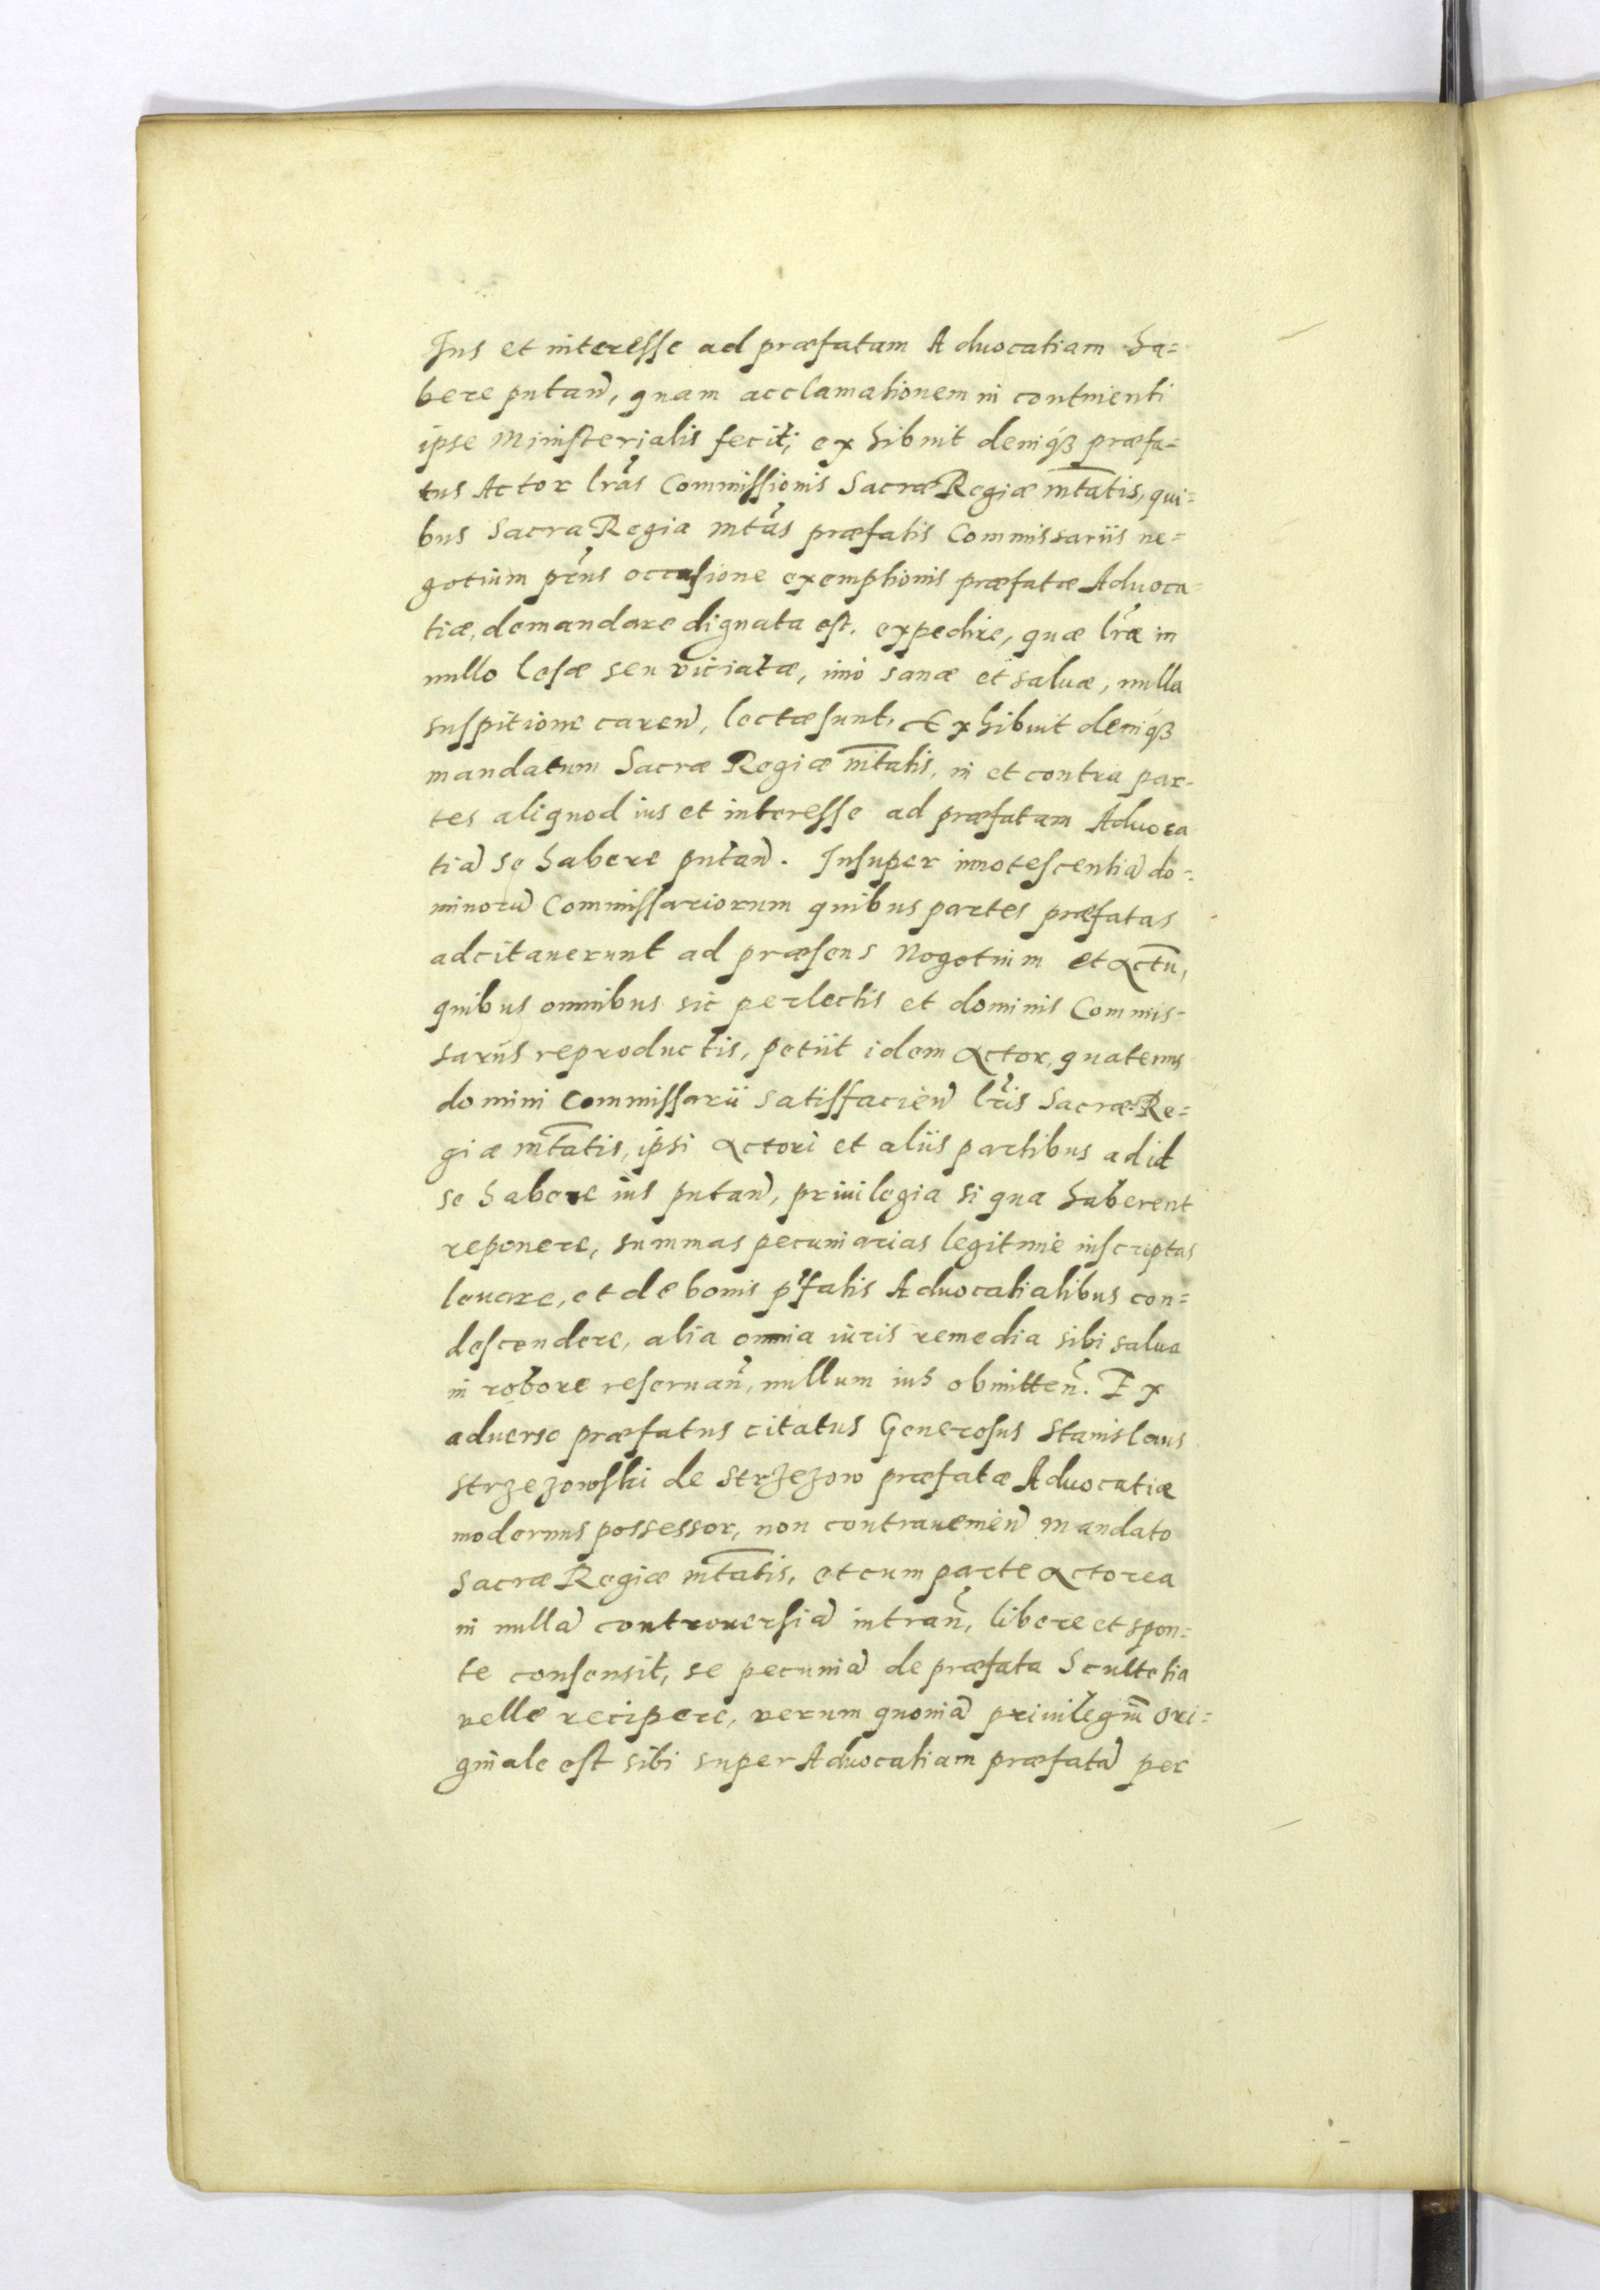 Ius et interesse ad præfatam Aduocatiam ha=
bere putañ, quam acclamationem in continenti
ipse Ministerialis fecit; exhibuit deniqȝ præfa=
tus Actor lr̃as Commissionis Sacræ Regiæ mt̃atis, qui=
bus Sacra Regia mt̃as præfatis Commissariis ne=
gotium pr̃ns occasione exemptionis præfatæ Aduoca=
tiæ, demandare dignata est, expedire, quæ lr̃æ in
nullo lesæ seu viciatæ, imò sanæ et saluæ, nulla
suspitione careñ, lectæ sunt, Exhibuit deniqȝ
mandatum Sacræ Regiæ mt̃atis, in et contra par-
tes aliquod ius et interesse ad præfatam Aduoca
tiã se habere putañ. Insuper innotescentiã do=
minorũ Commissariorum quibus partes præfatas
adcitauerunt ad præsens Negotium et actũ,
quibus omnibus sic perlectis et dominis Commis-
sariis reproductis, petiit idem actor, quatenus
domini Commissarii satisfacieñ lr̃is Sacræ Re=
giæ mt̃atis, ipsi actori et aliis partibus ad id
se habere ius putañ, priuilegia si qua haberent
reponere, summas pecuniarias legitimè inscriptas
leuare, et de bonis p̃fatis Aduocatialibus con=
descendere, alia omnia iuris remedia sibi salua
in robore reseruañ, nullum ius obmitteñ. Ex
aduerso præfatus citatus Generosus Stanislaus
Strzezowski de Strzezow præfatæ Aduocatiæ
modernus possessor, non contrauenieñ mandato
Sacræ Regiæ mt̃atis, et cum parte actorea
in nullã controuersiã intrañ, libere et spon=
te consensit, se pecuniã de præfata Scultetia
velle recipere, verum quoniã priuilegiũ ori=
ginale est sibi super Aduocatiam præfatã per